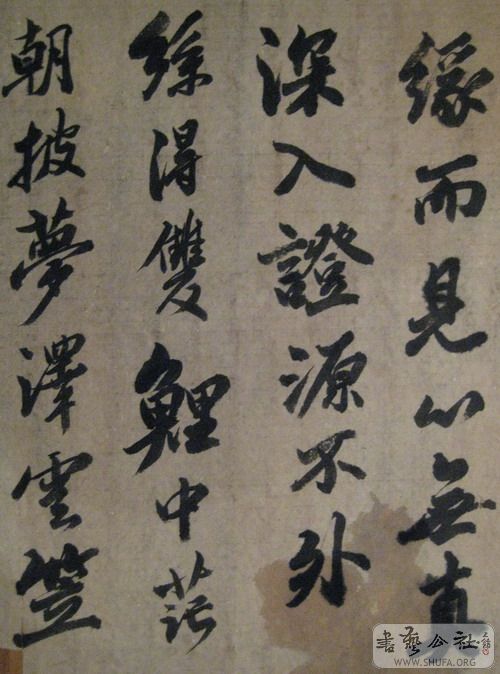 緣而見心無真
深入證源不外
絲得雙鯉中茫
朝披夢澤雲笠
書藝公社
WWW.SHUFA.ORG